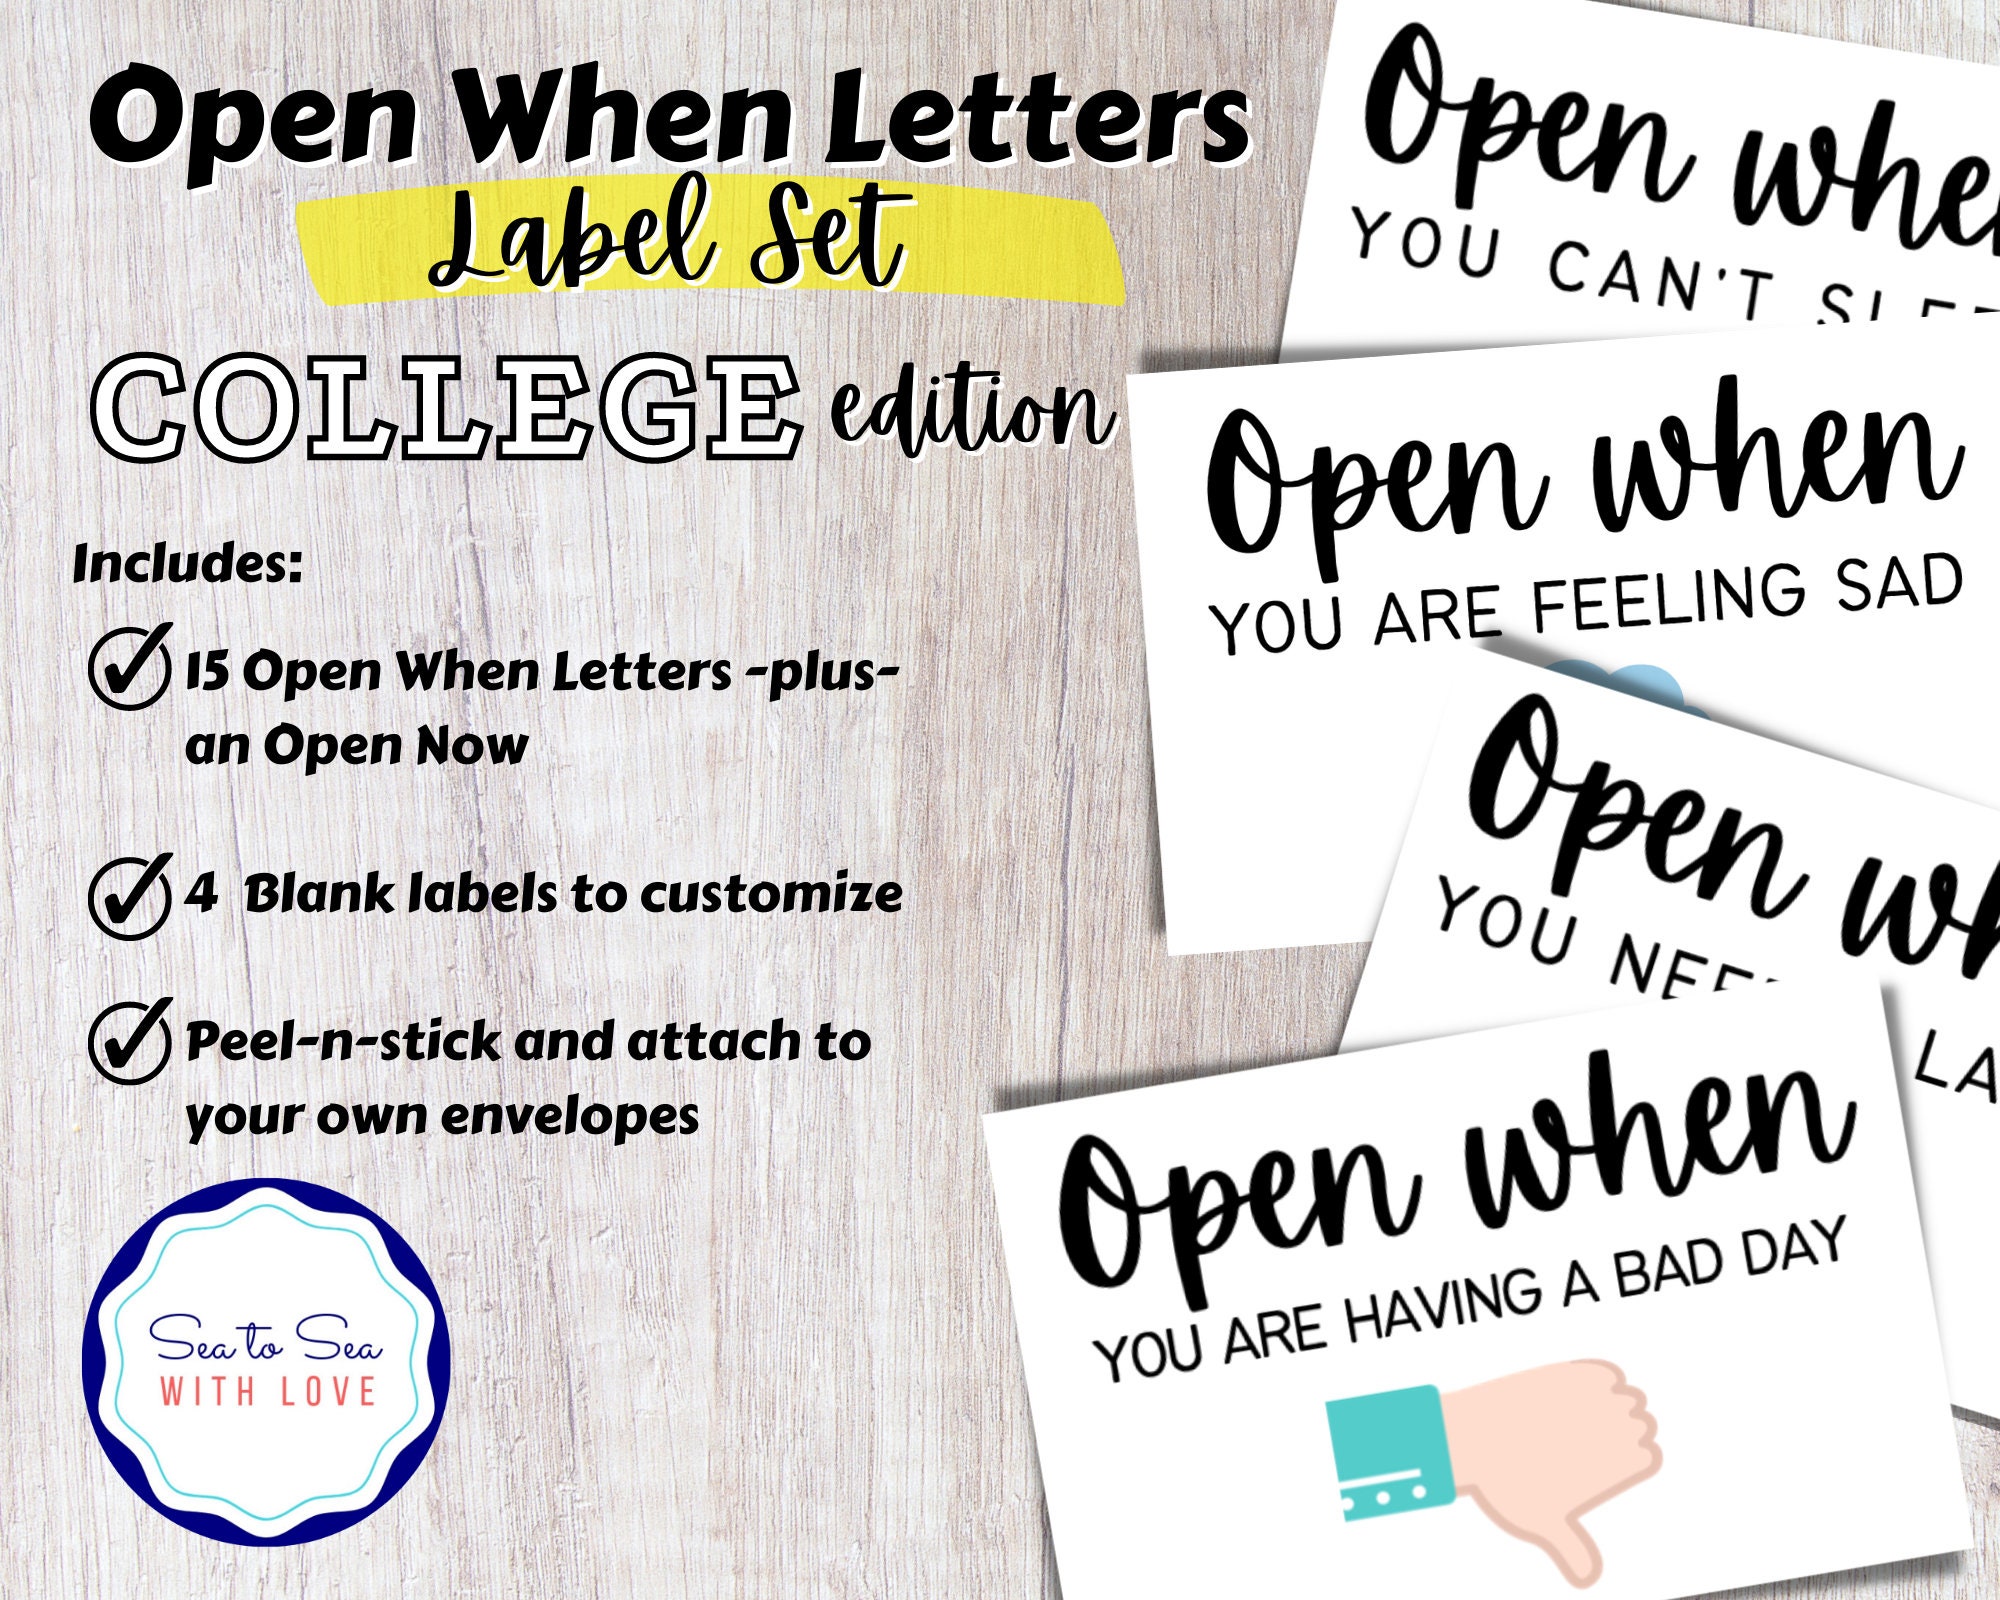 Open When Letters
Label Set
COLLEGE edition
Includes:
15 Open When Letters -plus-
an Open Now
4 Blank labels to customize
Peel-n-stick and attach to
your own envelopes
Sea to Sea
WITH LOVE
Open
YOU CAN'T
Open when
YOU ARE FEELING SAD
Open
YOU
Open when
YOU ARE HAVING A BAD DAY